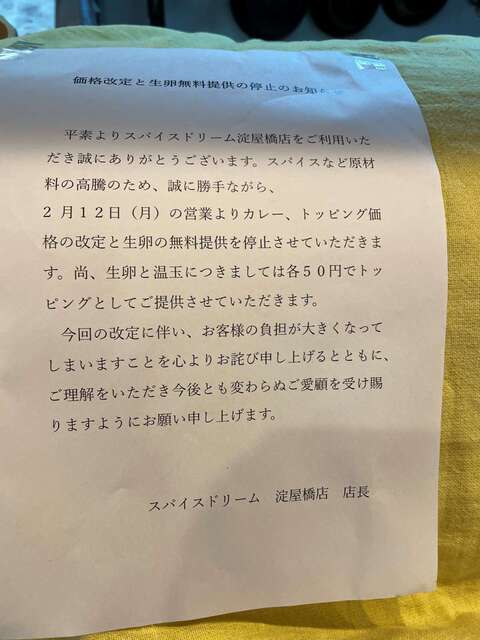 価格改定と生卵無料提供の停止のお知らせ
平素よりスパイスドリーム淀屋橋店をご利用いた
だき誠にありがとうございます。スパイスなど原材
料の高騰のため、誠に勝手ながら、
2月12日（月）の営業よりカレー、トッピング価
格の改定と生卵の無料提供を停止させていただきま
す。尚、生卵と温玉につきましては各50円でトッ
ピングとしてご提供させていただきます。
今回の改定に伴い、お客様の負担が大きくなって
しまいますことを心よりお詫び申し上げるとともに、
ご理解をいただき今後とも変わらぬご愛顧を受け賜
りますようにお願い申し上げます。
スパイスドリーム　淀屋橋店　店長